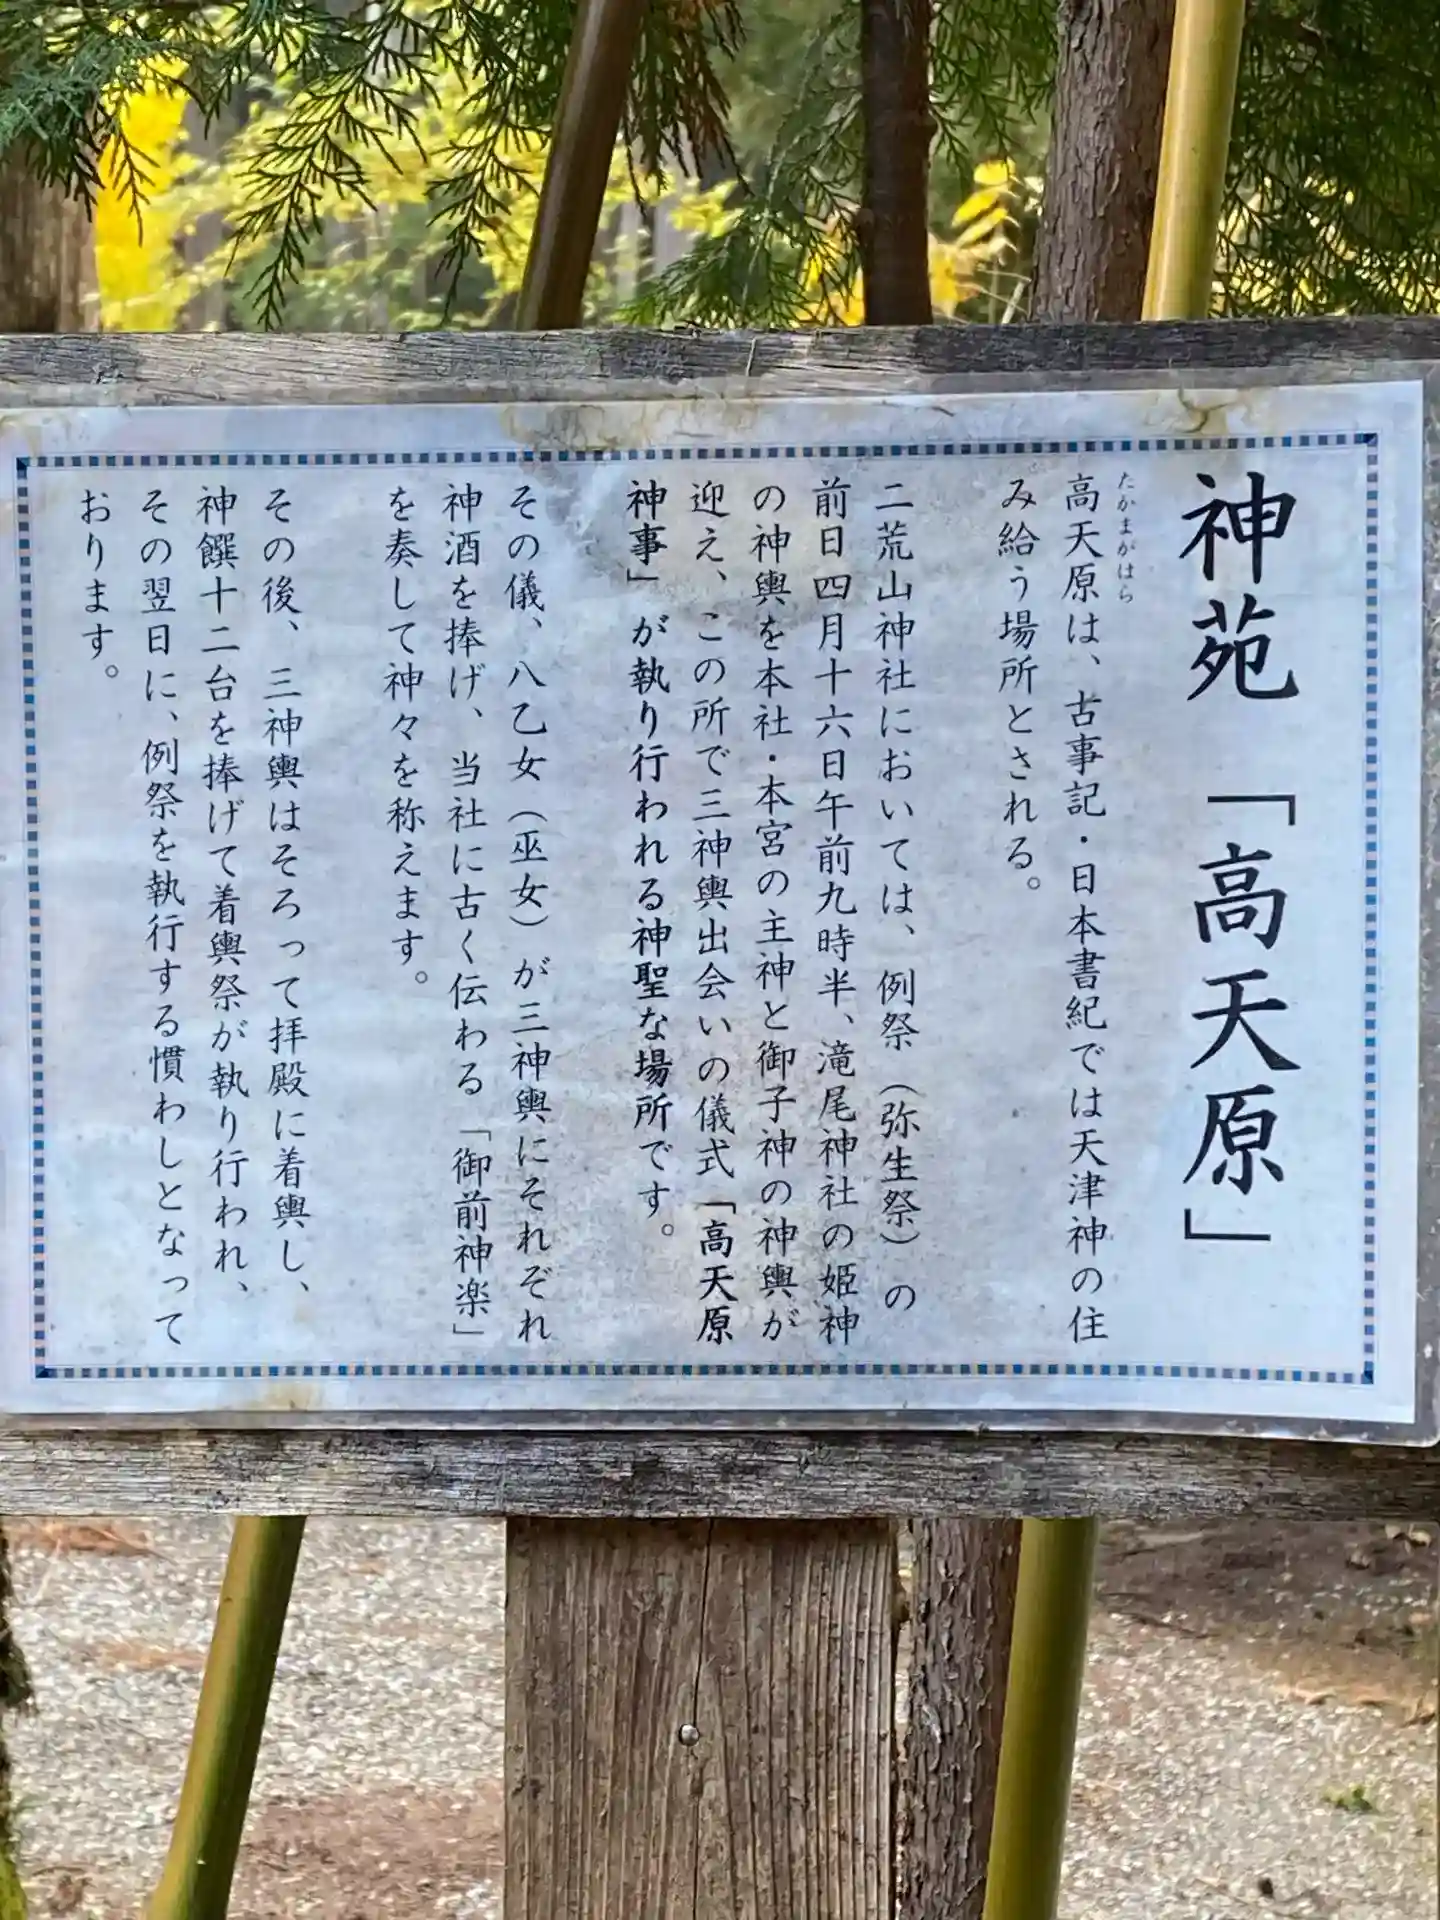 神苑「高天原」
たかまがはら
高天原は、古事記・日本書紀では天津神の住
み給う場所とされる。
二荒山神社においては、例祭（弥生祭）の
前日四月十六日午前九時半、滝尾神社の姫神
の神輿を本社・本宮の主神と御子神の神輿が
迎え、この所で三神輿出会いの儀式「高天原
神事」が執り行われる神聖な場所です。
その儀、八乙女（巫女）が三神輿にそれぞれ
神酒を捧げ、当社に古く伝わる「御前神楽」
を奏して神々を称えます。
その後、三神輿はそろって拝殿に着輿し、
神饌十二台を捧げて着輿祭が執り行われ、
その翌日に、例祭を執行する慣わしとなって
おります。